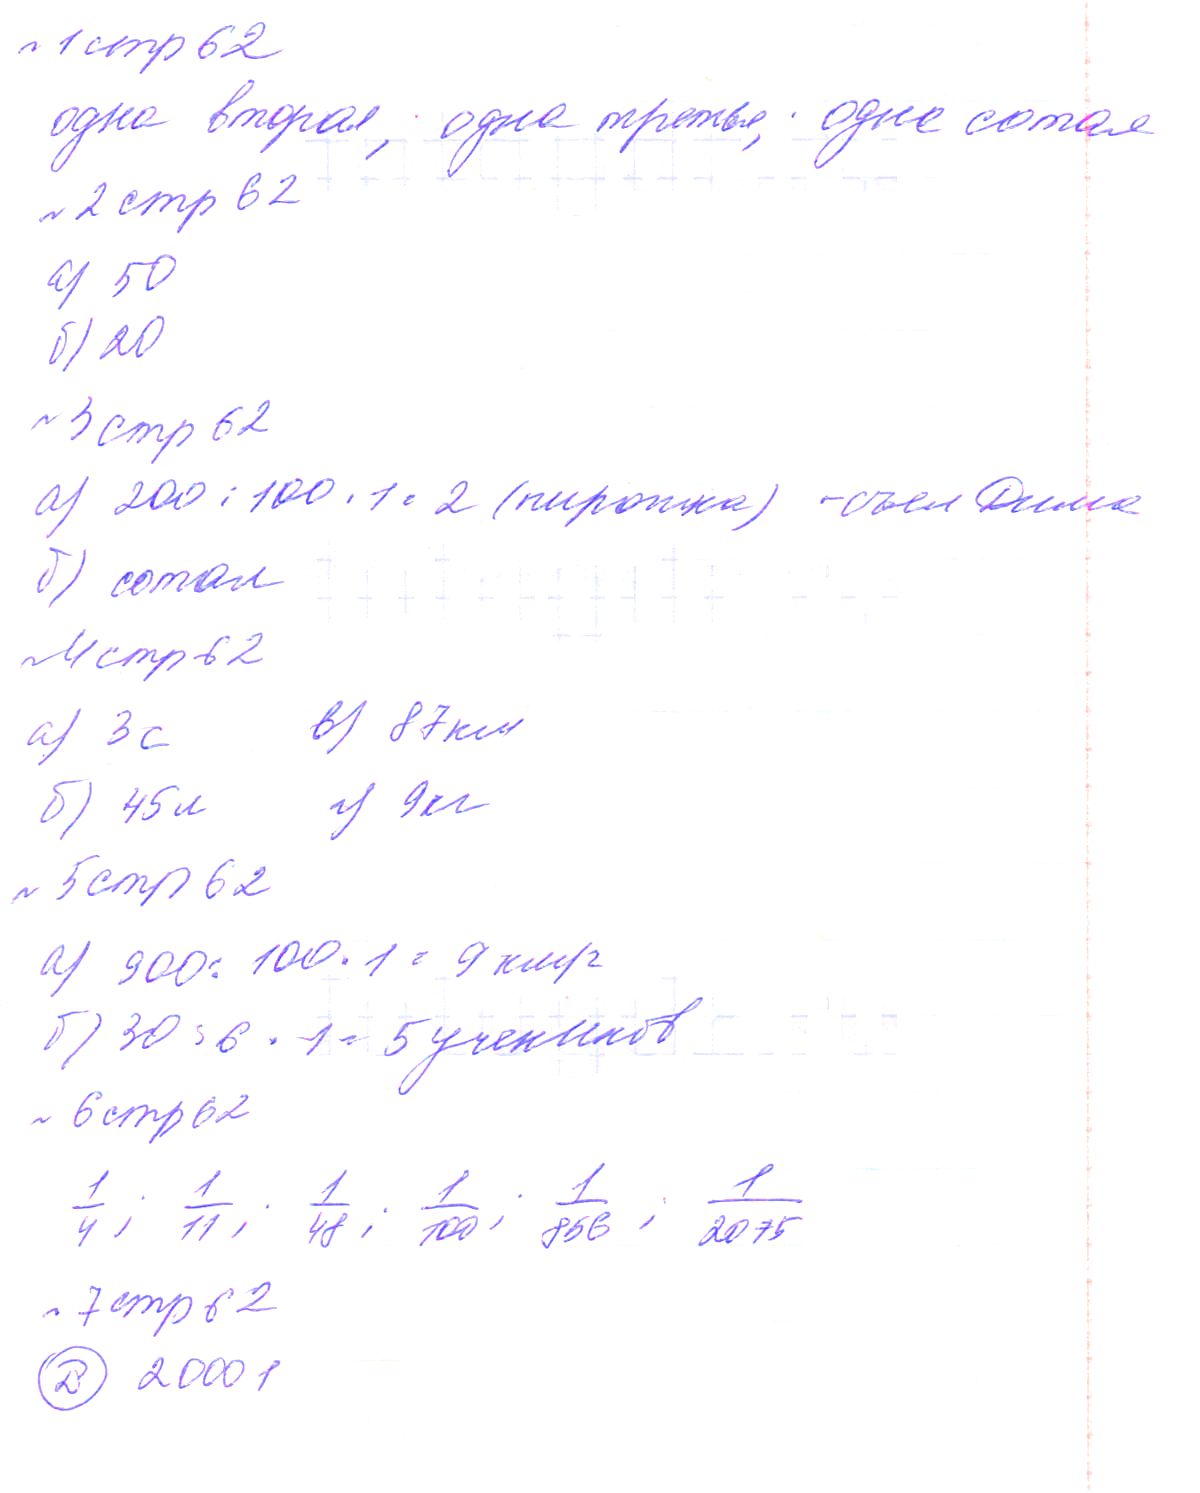 ~ 1 стр 62
одна вторая; одна третья; одна сотая
~ 2 стр 62
а) 50
б) 20
~ 3 стр 62
а) 200 : 100 · 1 = 2 (пирожка) - съел Дима
б) сотая
~ 4 стр 62
а) 3 с в) 87 км
б) 45 л г) 9 кг
~ 5 стр 62
а) 900 : 100 · 1 = 9 км/г
б) 30 : 6 · 1 = 5 учеников
~ 6 стр 62
1/4 ; 1/11 ; 1/48 ; 1/100 ; 1/856 ; 1/2075
~ 7 стр 62
Д 20001